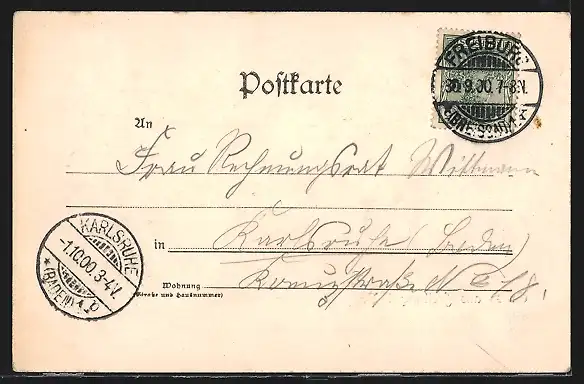 Postkarte
FREIBURG
30.9.00.7-8N.
(BREISGAU)
An
Frau Rechnungsrat Wittmann
KARLSRUHE
-1.10.00.3-4V.
*(BADEN) 1
in Karlsruhe (Baden)
Wohnung
(Straße und Hausnummer)